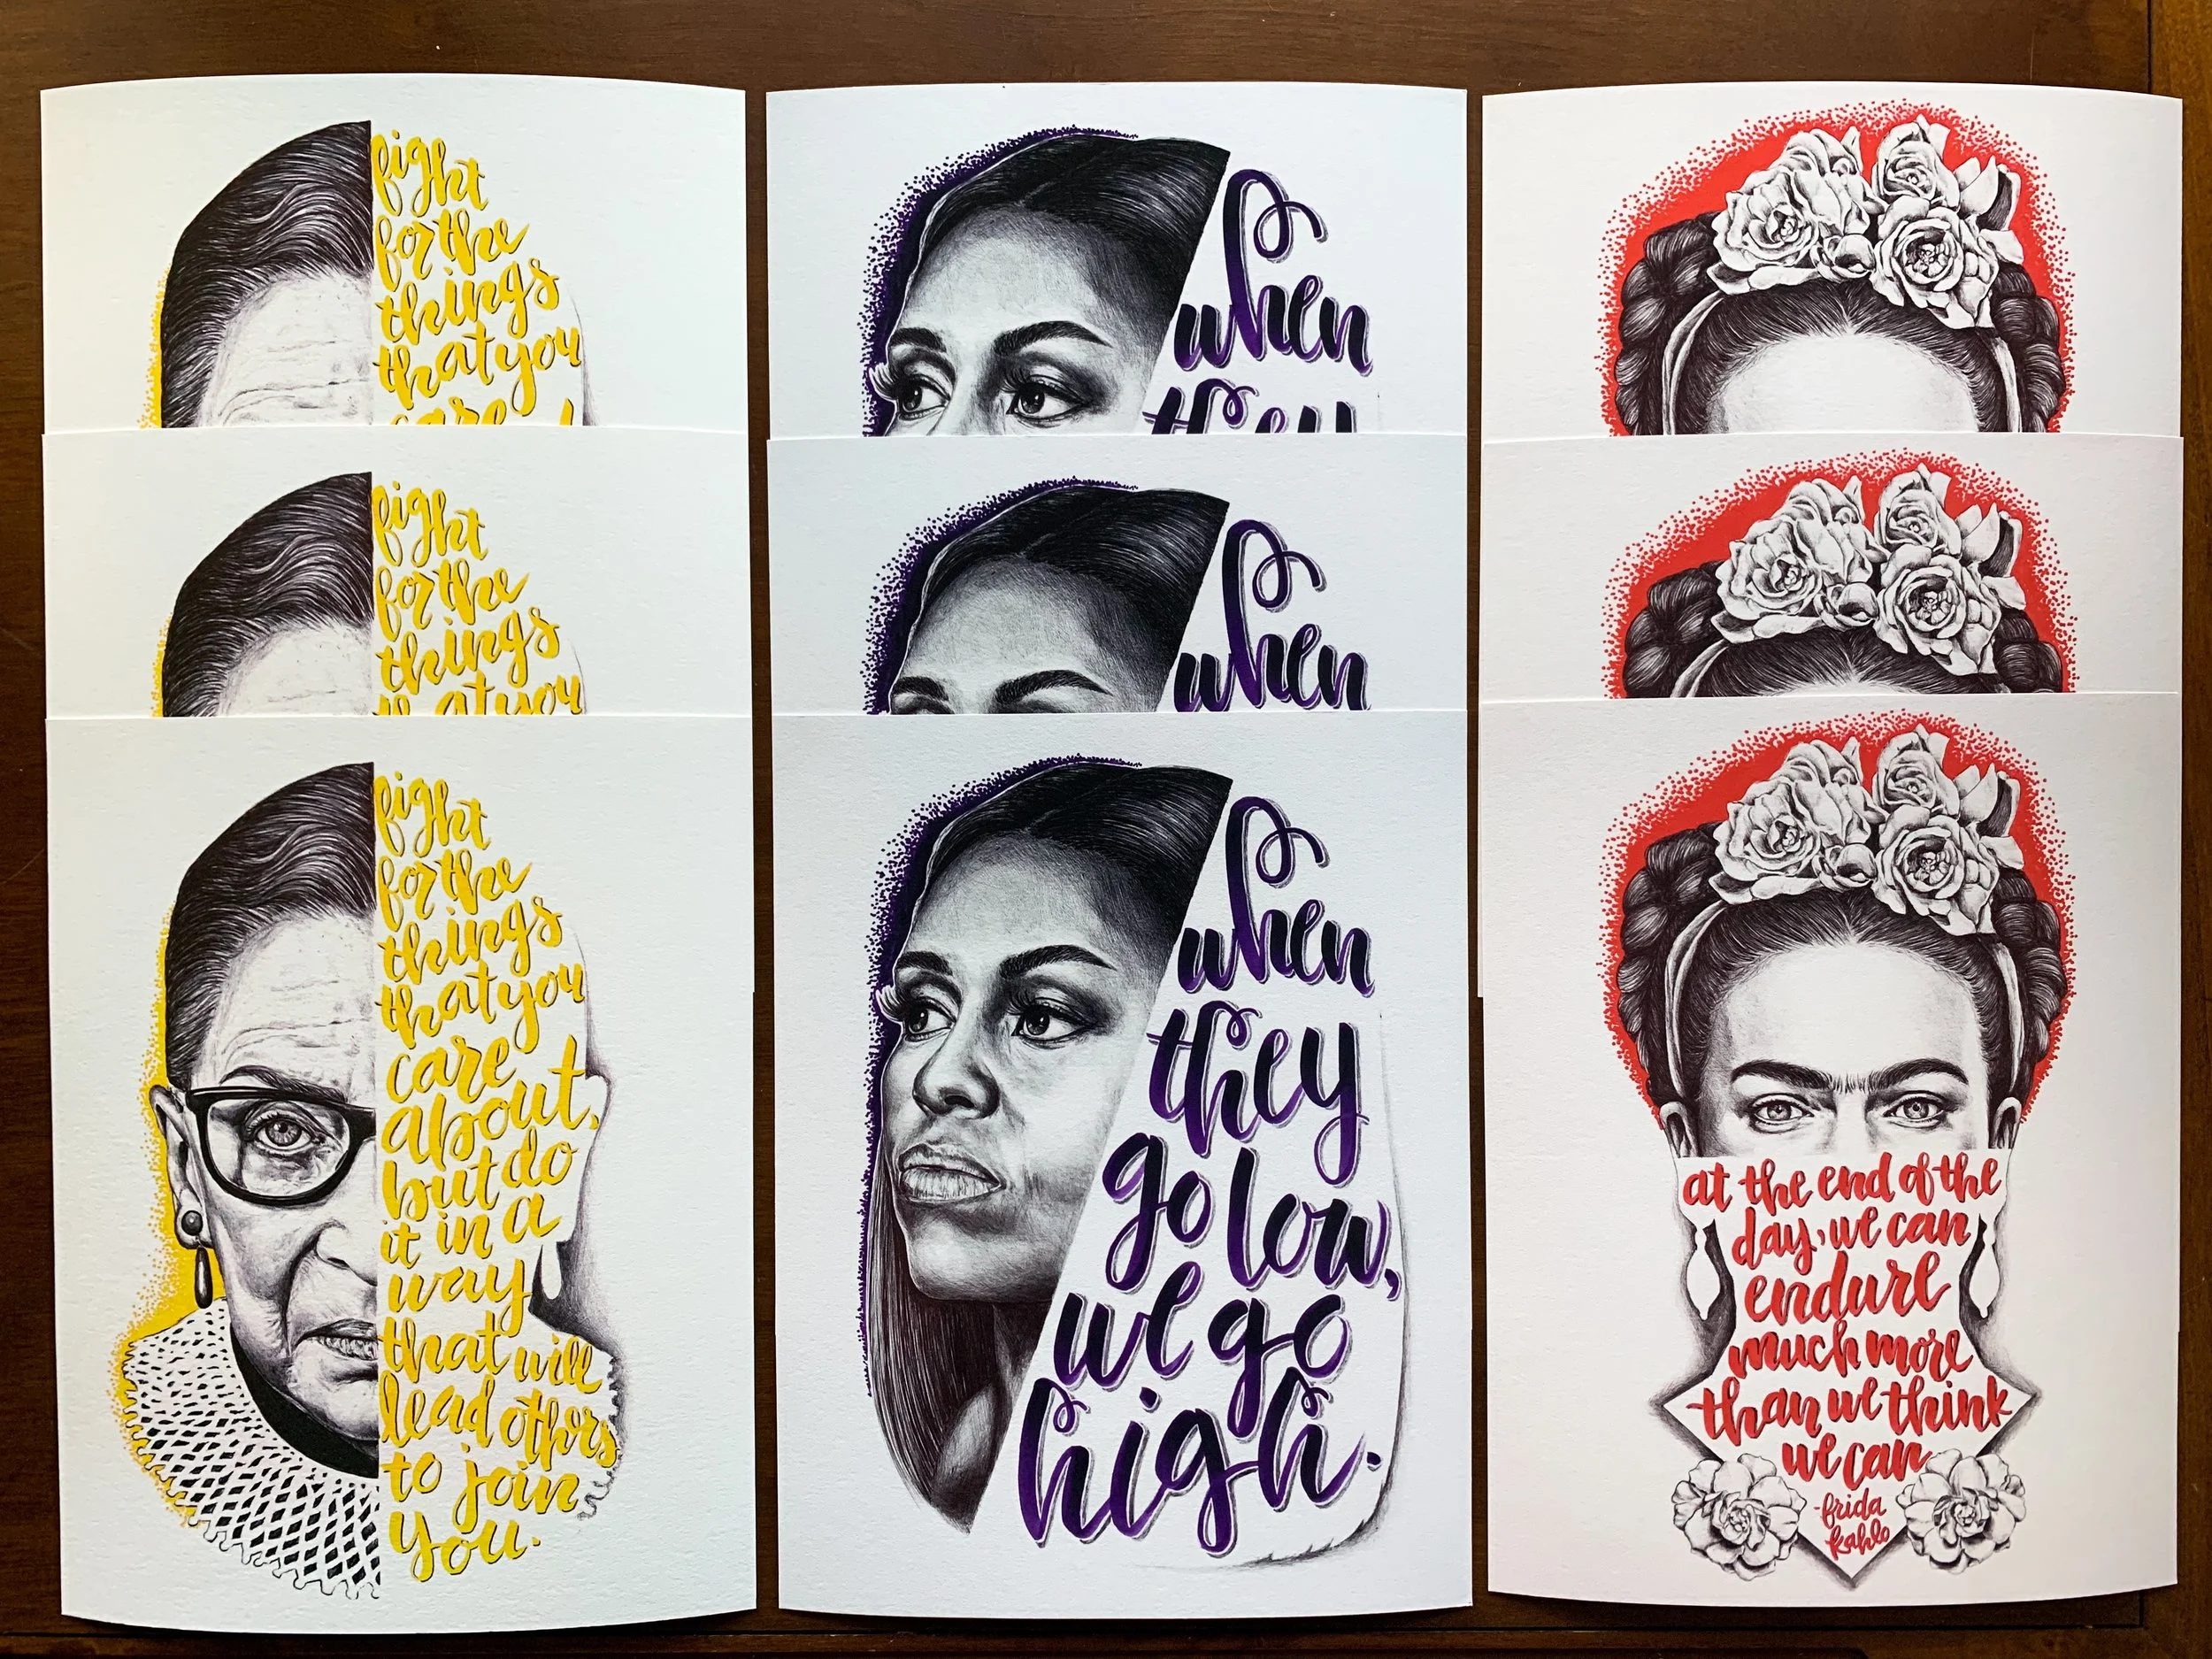 fight
for the
things
that you
care
fight
for the
things
that you
fight
for the
things
that you
care
about,
but do
it in a
way
that will
lead others
to join
you.
when
they
when
when
they
go low,
we go
high.
at the end of the
day, we can
endure
much more
than we think
we can
-frida
kahlo